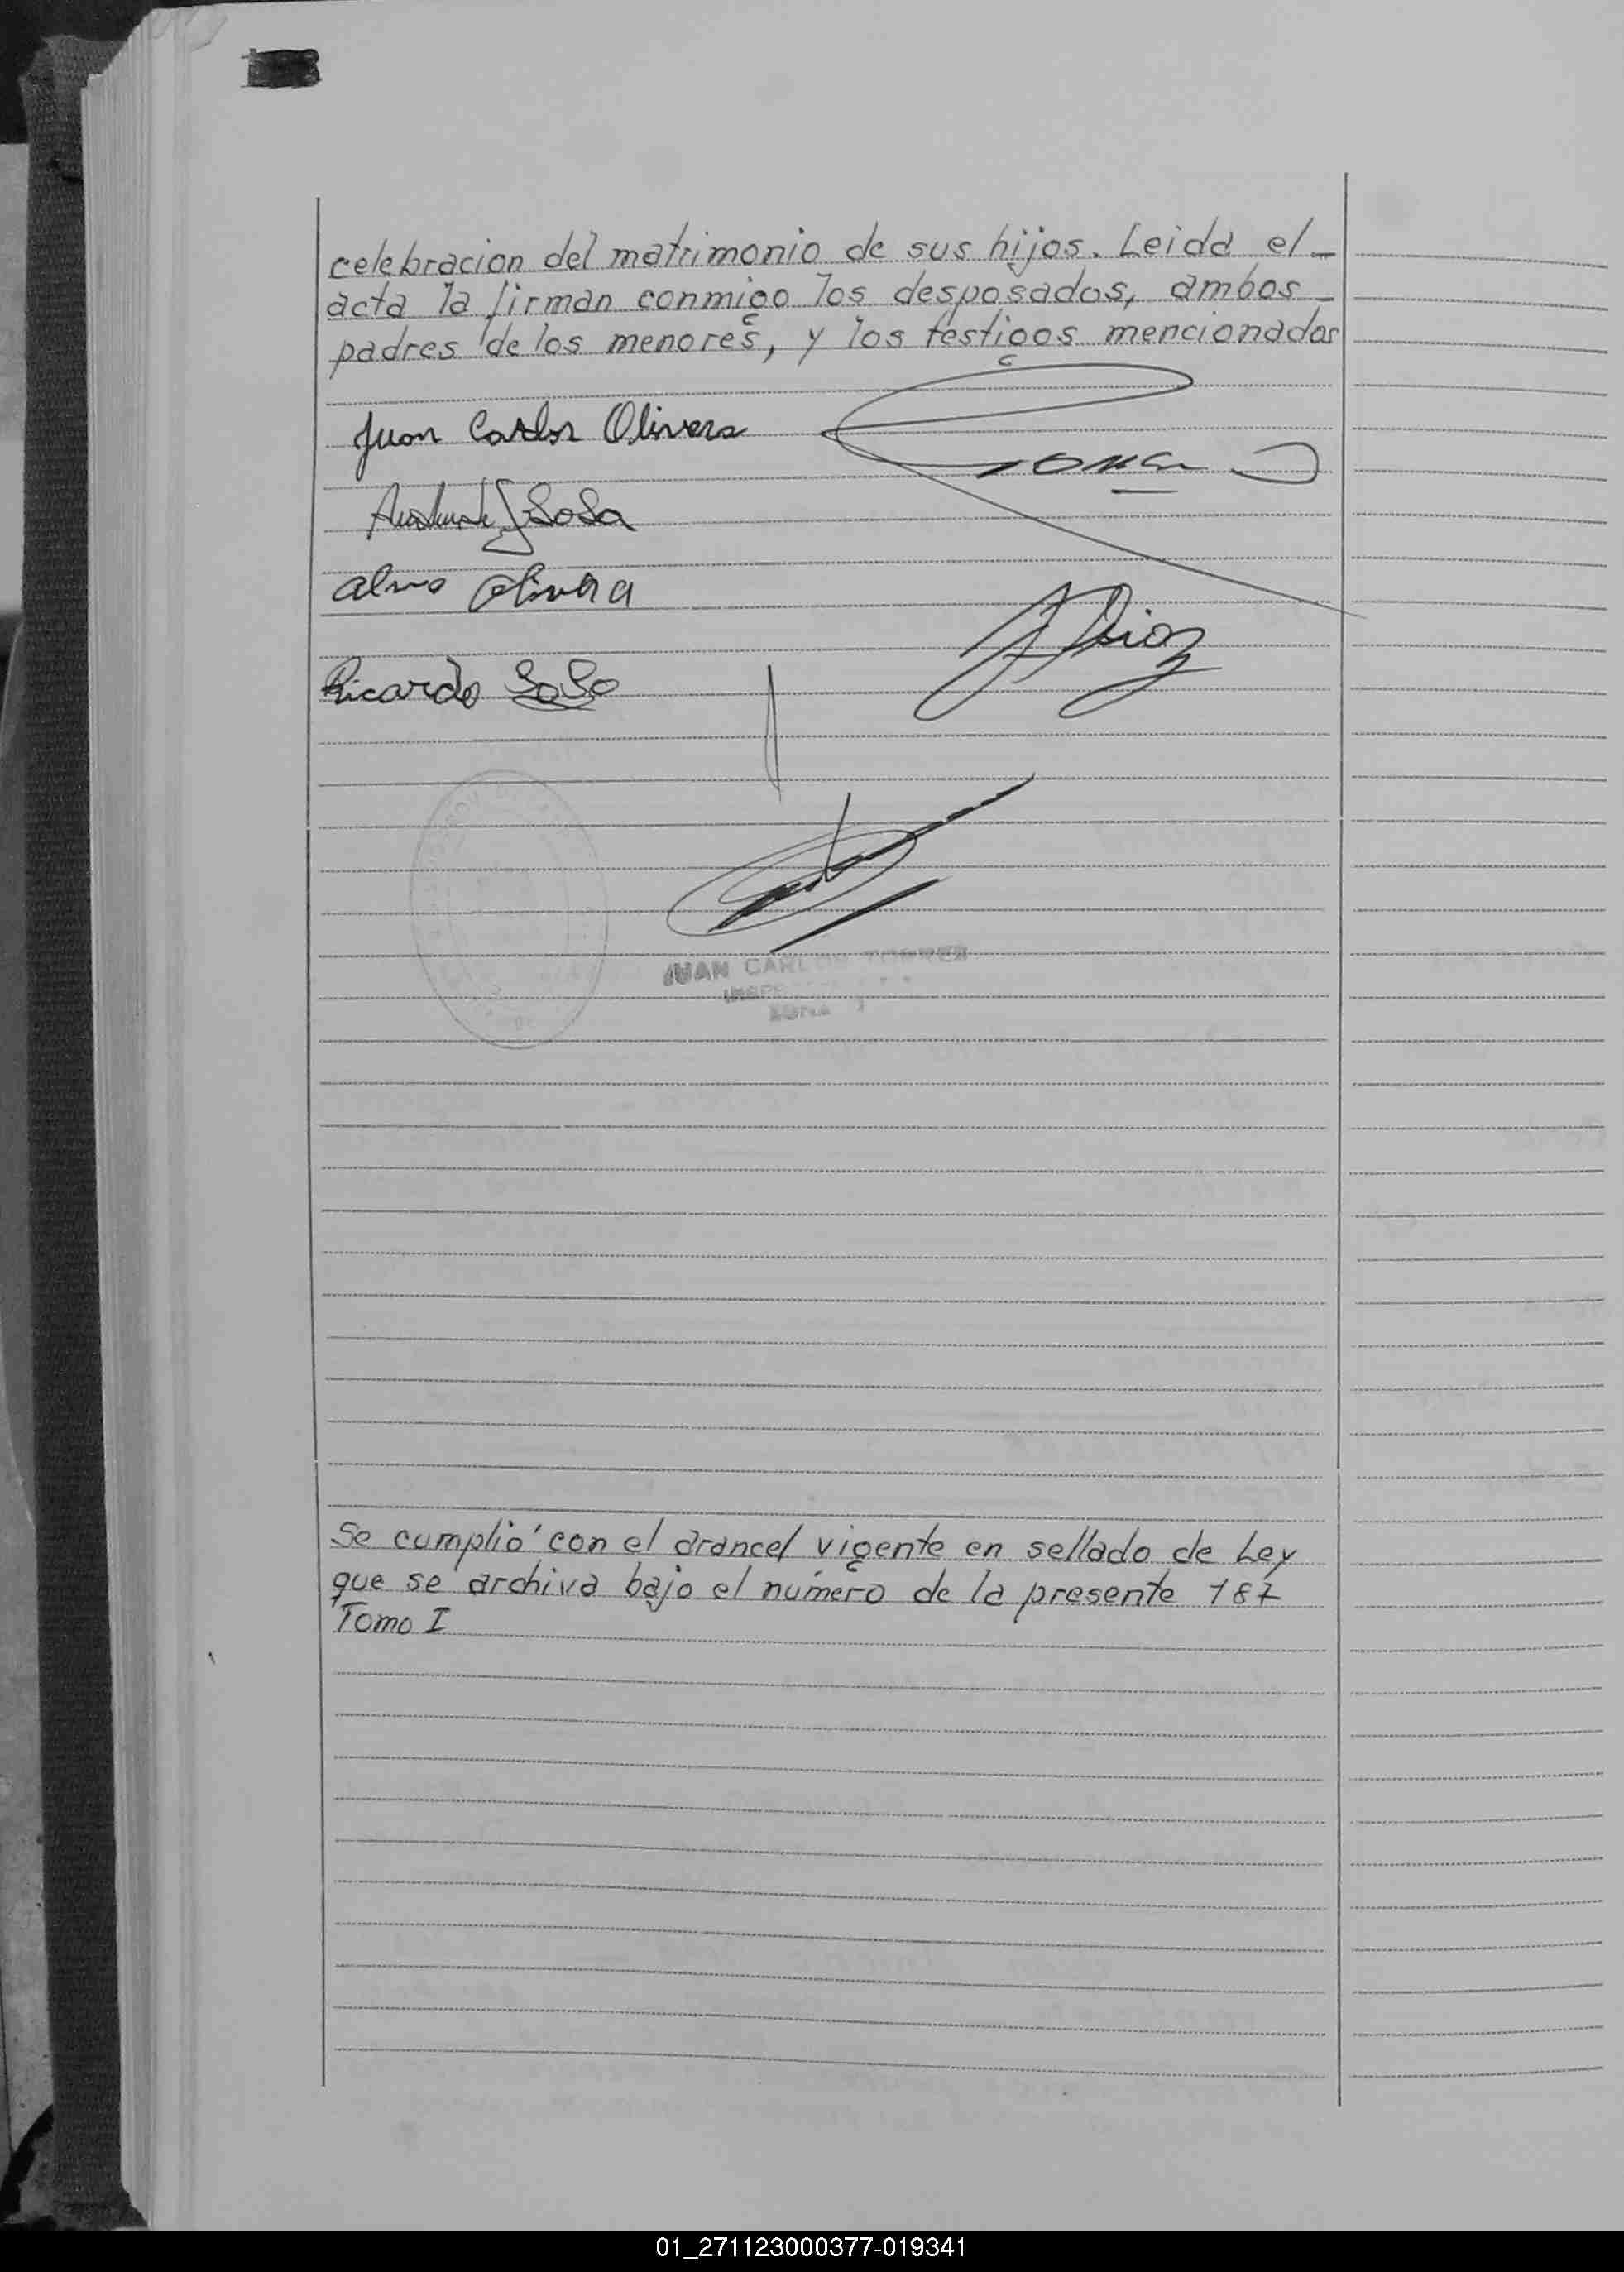 celebracion del matrimonio de sus hijos. Leida el
acta la firman conmigo los desposados, ambos
padres de los menores, y los testigos mencionados
Juan Carlos Olivera
Sosa
Olivera
Diaz
Ricardo Soso
JUAN CARLOS TORRES
Se cumplió con el arancel vigente en sellado de Ley
que se archiva bajo el número de la presente 187
Tomo I
01_271123000377-019341